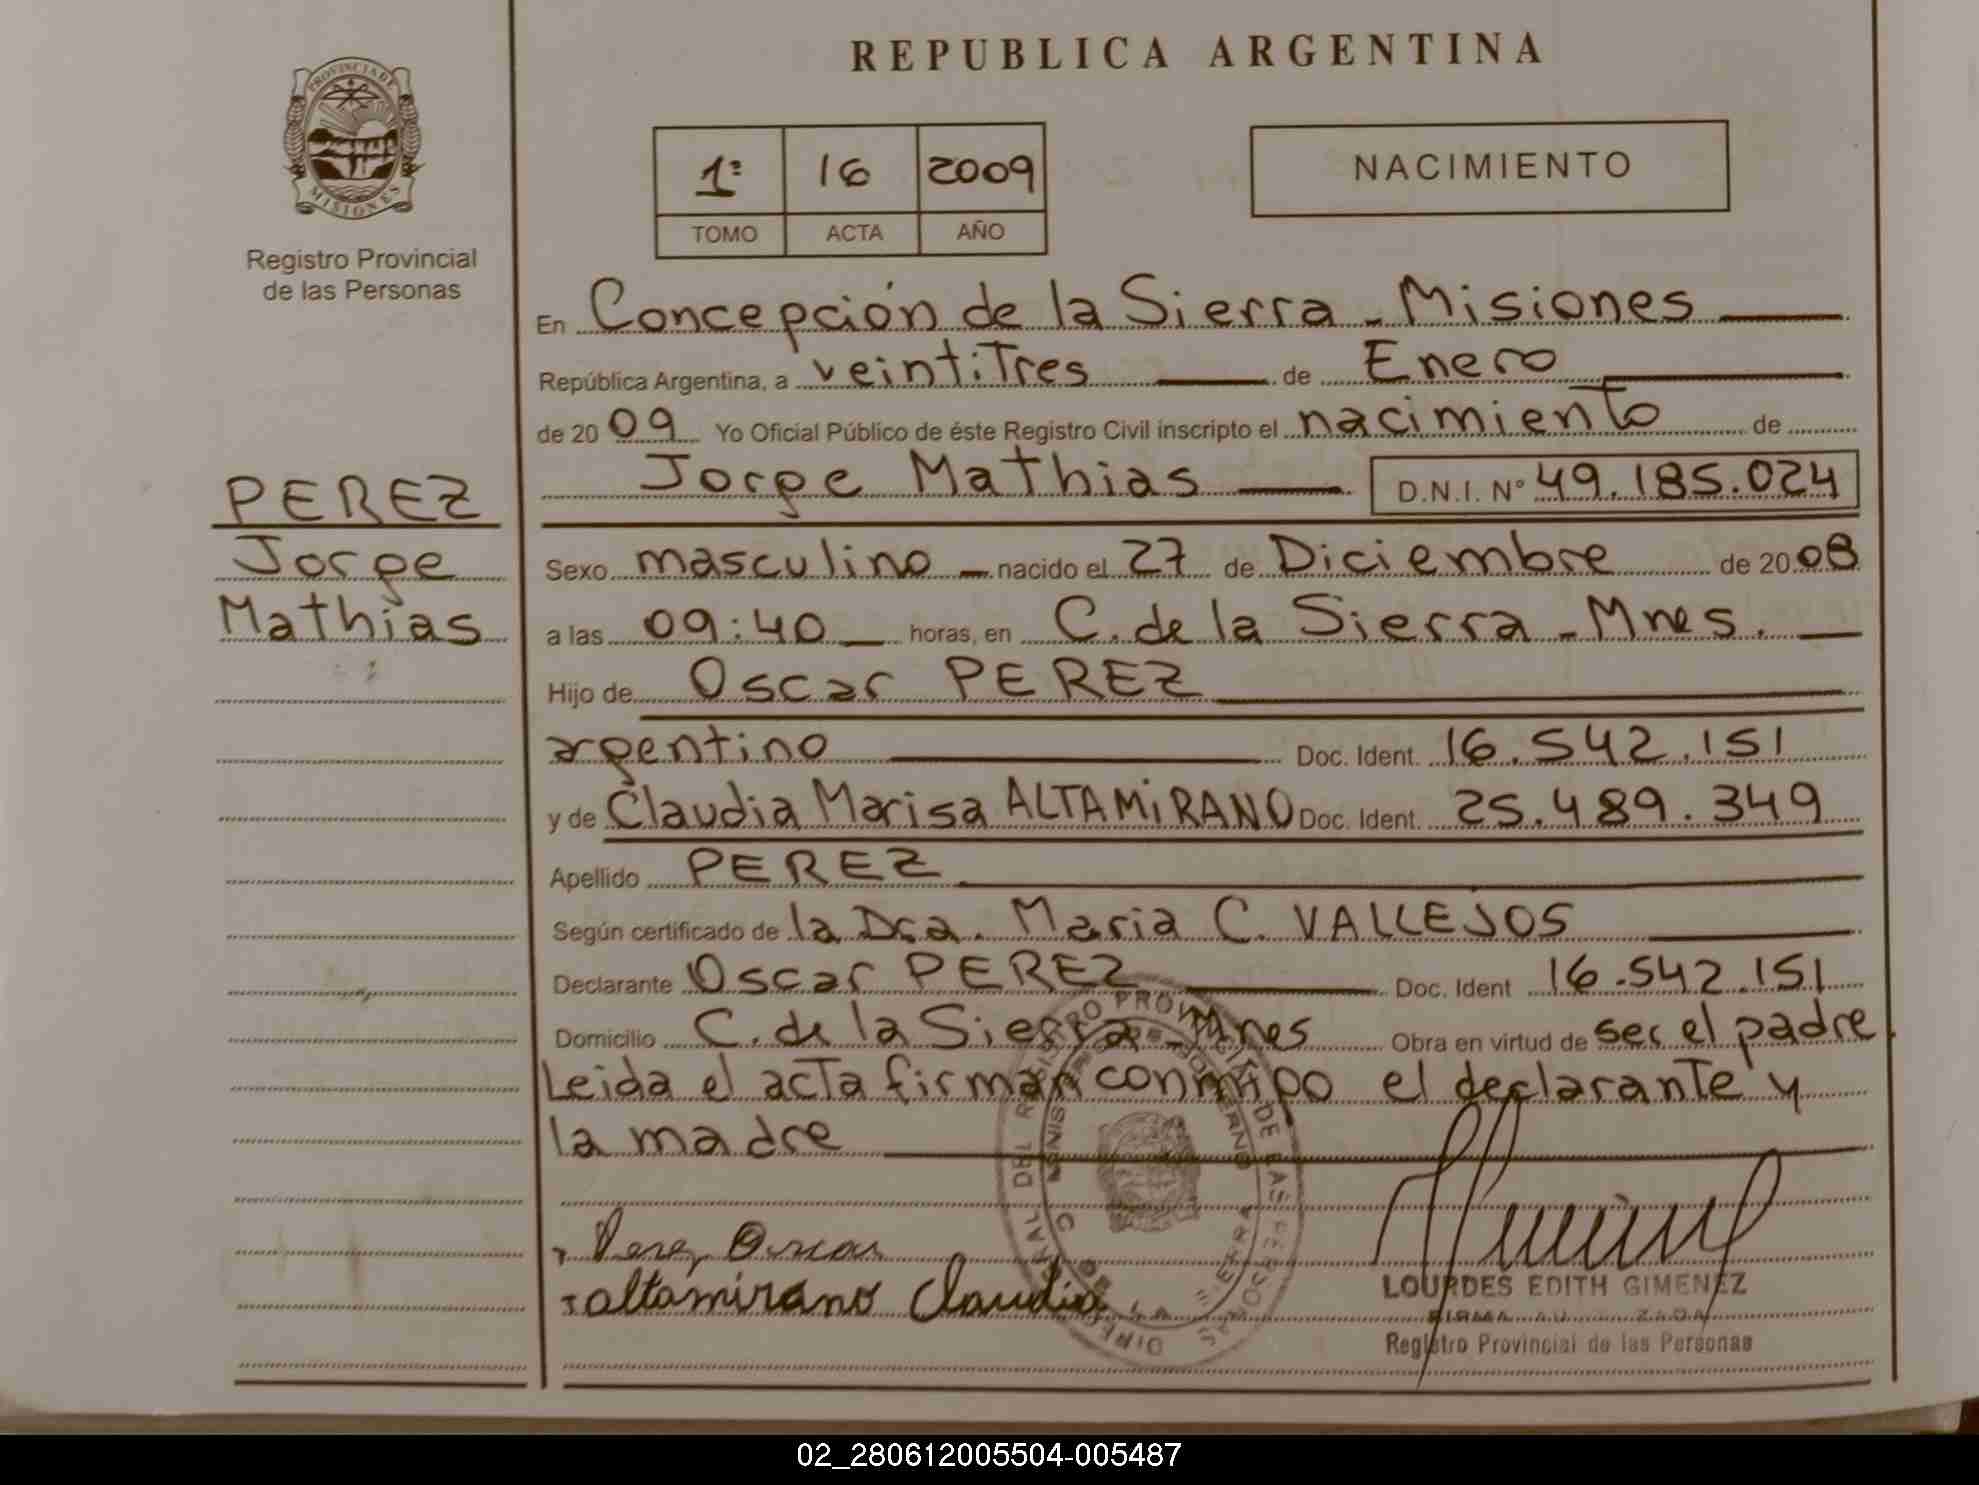 REPUBLICA ARGENTINA
PROVINCIA DE
MISIONES
Registro Provincial
de las Personas
1º 16 2009
TOMO ACTA AÑO
NACIMIENTO
En Concepción de la Sierra - Misiones
República Argentina, a veintiTres de Enero
de 2009 Yo Oficial Público de éste Registro Civil inscripto el nacimiento de
Jorge Mathias D.N.I. Nº 49.185.024
PEREZ
Jorge
Mathias
Sexo masculino - nacido el 27 de Diciembre de 2008
a las 09:40 horas, en C. de la Sierra - Mnes.
Hijo de Oscar PEREZ
argentino Doc. Ident. 16.542.151
y de Claudia Marisa ALTAMiRANO Doc. Ident. 25.489.349
Apellido PEREZ
Según certificado de la Dra. Maria C. VALLEJOS
Declarante Oscar PEREZ Doc. Ident 16.542.151
Domicilio C. de la Sierra - Mnes Obra en virtud de ser el padre.
Leida el acta firman conmigo el declarante y
la madre
Perez Oscar
altamirano Claudia
LOURDES EDITH GIMENEZ
FIRMA
Registro Provincial de las Personas
02_280612005504-005487